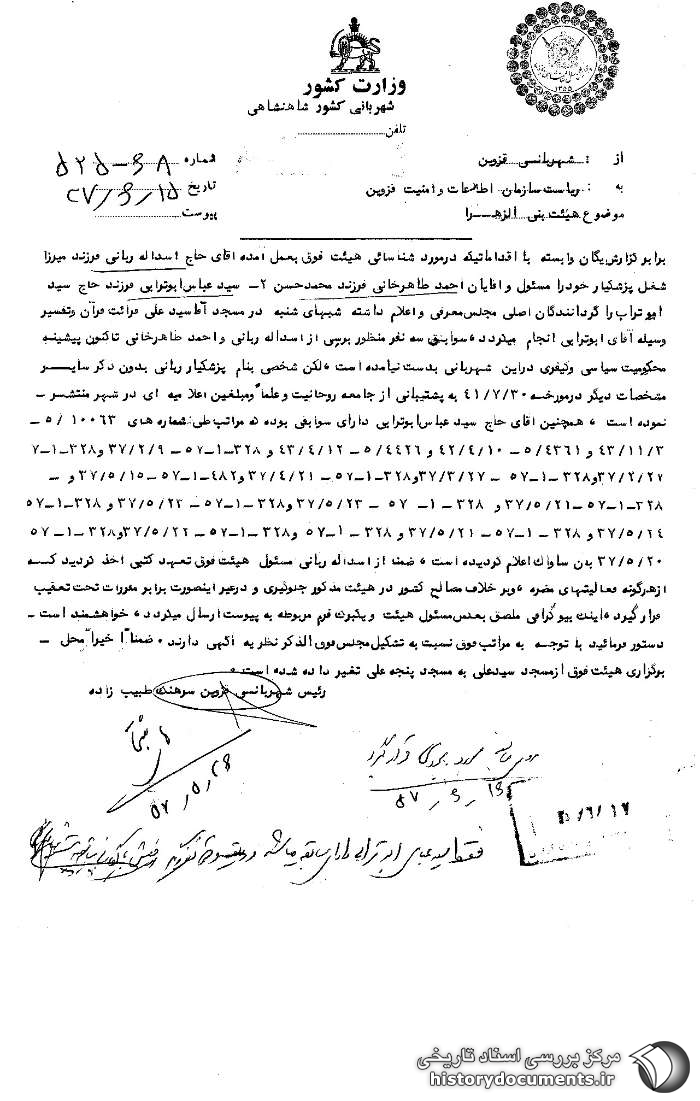 وزارت کشور
شهربانی کشور شاهنشاهی
تلفن
از : شهربانی قزوین
شماره ۶۸-۵۲۵
به : ریاست سازمان اطلاعات و امنیت قزوین
تاریخ ۱۵/۶/۲۷
موضوع هیئت بنی الزهرا
پیوست
برابر گزارش یگان وابسته با اقداماتیکه درمورد شناسائی هیئت فوق بعمل آمده آقای حاج اسداله ربانی فرزند میرزا
شغل پزشکیار خودرا مسئول و آقایان احمد طاهرخانی فرزند محمدحسن ۲ـ سید عباس ابوترابی فرزند حاج سید
ابوتراب را گردانندگان اصلی مجلس معرفی و اعلام داشته شبهای شنبه در مسجد آقا سید علی قرائت قرآن و تفسیر
وسیله آقای ابوترابی انجام میگردد، سوابق سه نفر منظور بررسی از اسداله ربانی و احمد طاهرخانی تاکنون پیشینه
محکومیت سیاسی و کیفری دراین شهربانی بدست نیامده است، لکن شخصی بنام پزشکیار ربانی بدون ذکر سایر
مشخصات دیگر درمورخه ۴۱/۷/۳۰ به پشتیبانی از جامعه روحانیت و علماً و مبلغین اعلامیه ای در شهر منتشر ـ
نموده است، همچنین آقای حاج سید عباس ابوترابی دارای سوابقی بوده که مراتب طی شماره های ۱۰۰۶۳ /۵ـ
۴۳/۱۱/۳ و ۵/۴۳۶۱ـ ۴۲/۴/۱۰ و ۵/۴۴۲۶ـ ۴۳/۴/۱۲ و ۳۲۸ـ۱ـ۵۷ـ ۳۷/۲/۹ و ۳۲۸ـ۱ـ۵۷
۳۷/۲/۲۷ و۳۲۸ـ۱ـ۵۷ـ ۳۷/۳/۲۷ و۳۲۸ـ۱ـ۵۷ـ ۳۷/۴/۲۱ و ۴۸۲ـ۱ـ۵۷ـ۳۷/۵/۱۵ و ـ
۳۲۸ـ۱ـ۵۷ـ ۳۷/۵/۲۱ و ۳۲۸ ـ۱ـ ۵۷ ـ ۳۷/۵/۲۳ و۳۲۸ـ۱ـ۵۷ـ ۳۷/۵/۲۳ و ۳۲۸ـ۱ـ۵۷
۳۷/۵/۲۴ و ۳۲۸ ـ۱ـ۵۷ ـ ۳۷/۵/۲۱ و ۳۲۸ ـ ۱ـ۵۷ و۳۲۸ـ۱ـ۵۷ـ ۳۷/۵/۲۲ و۳۲۸ـ۱ـ۵۷
۳۷/۵/۲۰ بدن ساواک اعلام گردیده است، ضمناً از اسداله ربانی مسئول هیئت فوق تعهد کتبی اخذ گردید که
ازهرگونه فعالیتهای مضره و بر خلاف مصالح کشور در هیئت مذکور جلوگیری و درغیر اینصورت برابر مقررات تحت تعقیب
قرار گیرد، اینک بیوگرافی ملصق بعکس مسئول هیئت و یکبرگ فرم مربوطه به پیوست ارسال میگردد، خواهشمند است ـ
دستور فرمائید با توجه به مراتب فوق نسبت به تشکیل مجلس فوق الذکر نظریه آگهی دارند، ضمناً اخیراً محل ـ
برگزاری هیئت فوق از مسجد سیدعلی به مسجد پنجه علی تغیر داده شده است،
رئیس شهربانی قزوین سرهنگ طبیب زاده
۵۷/۶/۱۶
۲۰/۶/۱۷
فقط سید عباس ابوترابی دارای سابقه میباشد
مرکز بررسی اسناد تاریخی
historydocuments.ir